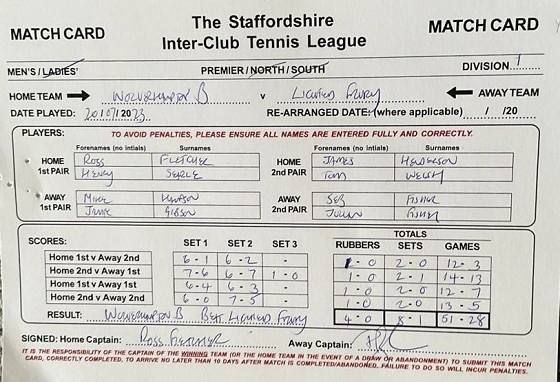 MATCH CARD The Staffordshire MATCH CARD
Inter-Club Tennis League
MEN'S / LADIES' PREMIER / NORTH / SOUTH DIVISION 1
HOME TEAM Wolverhampton B v Lichfield Friary AWAY TEAM
DATE PLAYED: 20/07/2023 RE-ARRANGED DATE: (where applicable) / /20
PLAYERS: TO AVOID PENALTIES, PLEASE ENSURE ALL NAMES ARE ENTERED FULLY AND CORRECTLY.
Forenames (no intials) Surnames Forenames (no intials) Surnames
HOME 1ST PAIR Ross FLETCHER HOME 2ND PAIR JAMES HENDERSON
Henry SEARLE Tom WELSH
AWAY 1ST PAIR Mike AWAY 2ND PAIR SEB FISHER
Jamie GIBSON JULIAN FISHER
SCORES: TOTALS
SET 1 SET 2 SET 3 RUBBERS SETS GAMES
Home 1st v Away 2nd 6 - 1 6 - 2 - 1 - 0 2 - 0 12 - 3
Home 2nd v Away 1st 7 - 6 6 - 7 1 - 0 1 - 0 2 - 1 14 - 13
Home 1st v Away 1st 6 - 4 6 - 3 - 1 - 0 2 - 0 12 - 7
Home 2nd v Away 2nd 6 - 0 7 - 5 - 1 - 0 2 - 0 13 - 5
RESULT: Wolverhampton B Beat Lichfield Friary 4 - 0 8 - 1 51 - 28
SIGNED: Home Captain: Ross Fletcher Away Captain:
IT IS THE RESPONSIBILITY OF THE CAPTAIN OF THE WINNING TEAM (OR THE HOME TEAM IN THE EVENT OF A DRAW OR ABANDONMENT) TO SUBMIT THIS MATCH
CARD, CORRECTLY COMPLETED, TO ARRIVE NO LATER THAN 10 DAYS AFTER MATCH IS COMPLETED/ABANDONED. FAILURE TO DO SO WILL INCUR PENALTIES.